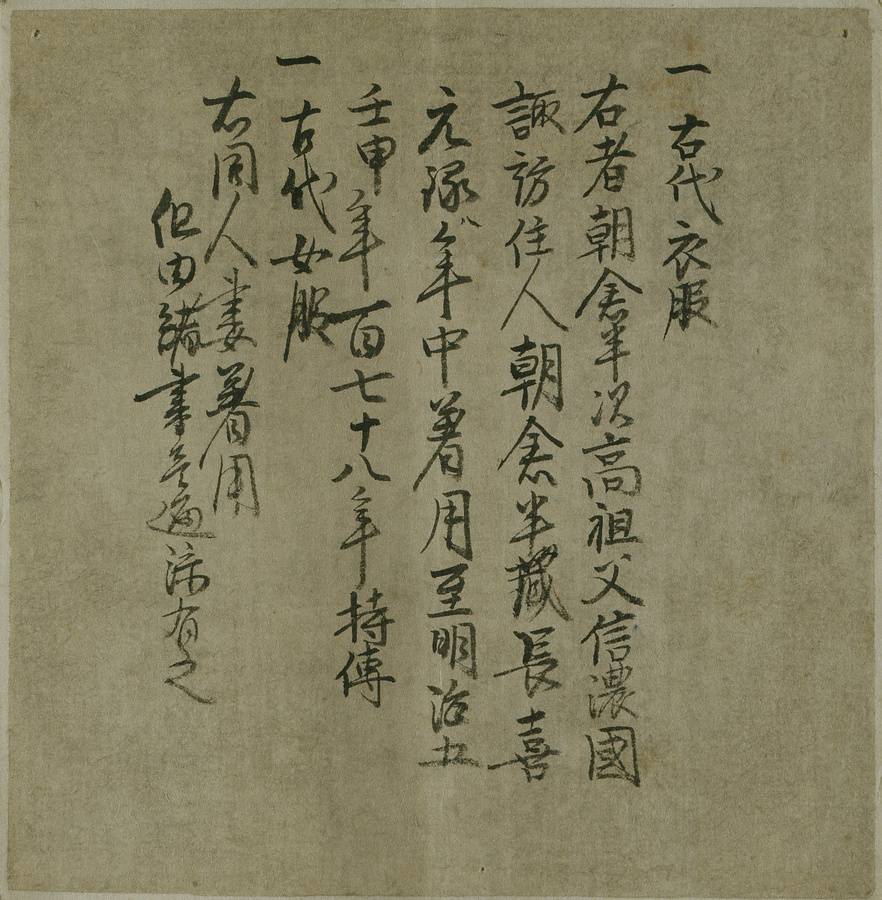 一古代衣服
右者朝倉半次高祖父信濃國
諏訪住人朝倉半蔵長喜
元禄年中著用至明治五
壬申年一百七十八年持傳
一古代女服
右同人妻著用
但由緒書
有之